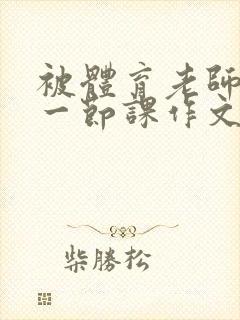 被體育老師
一節課作文
柴勝松